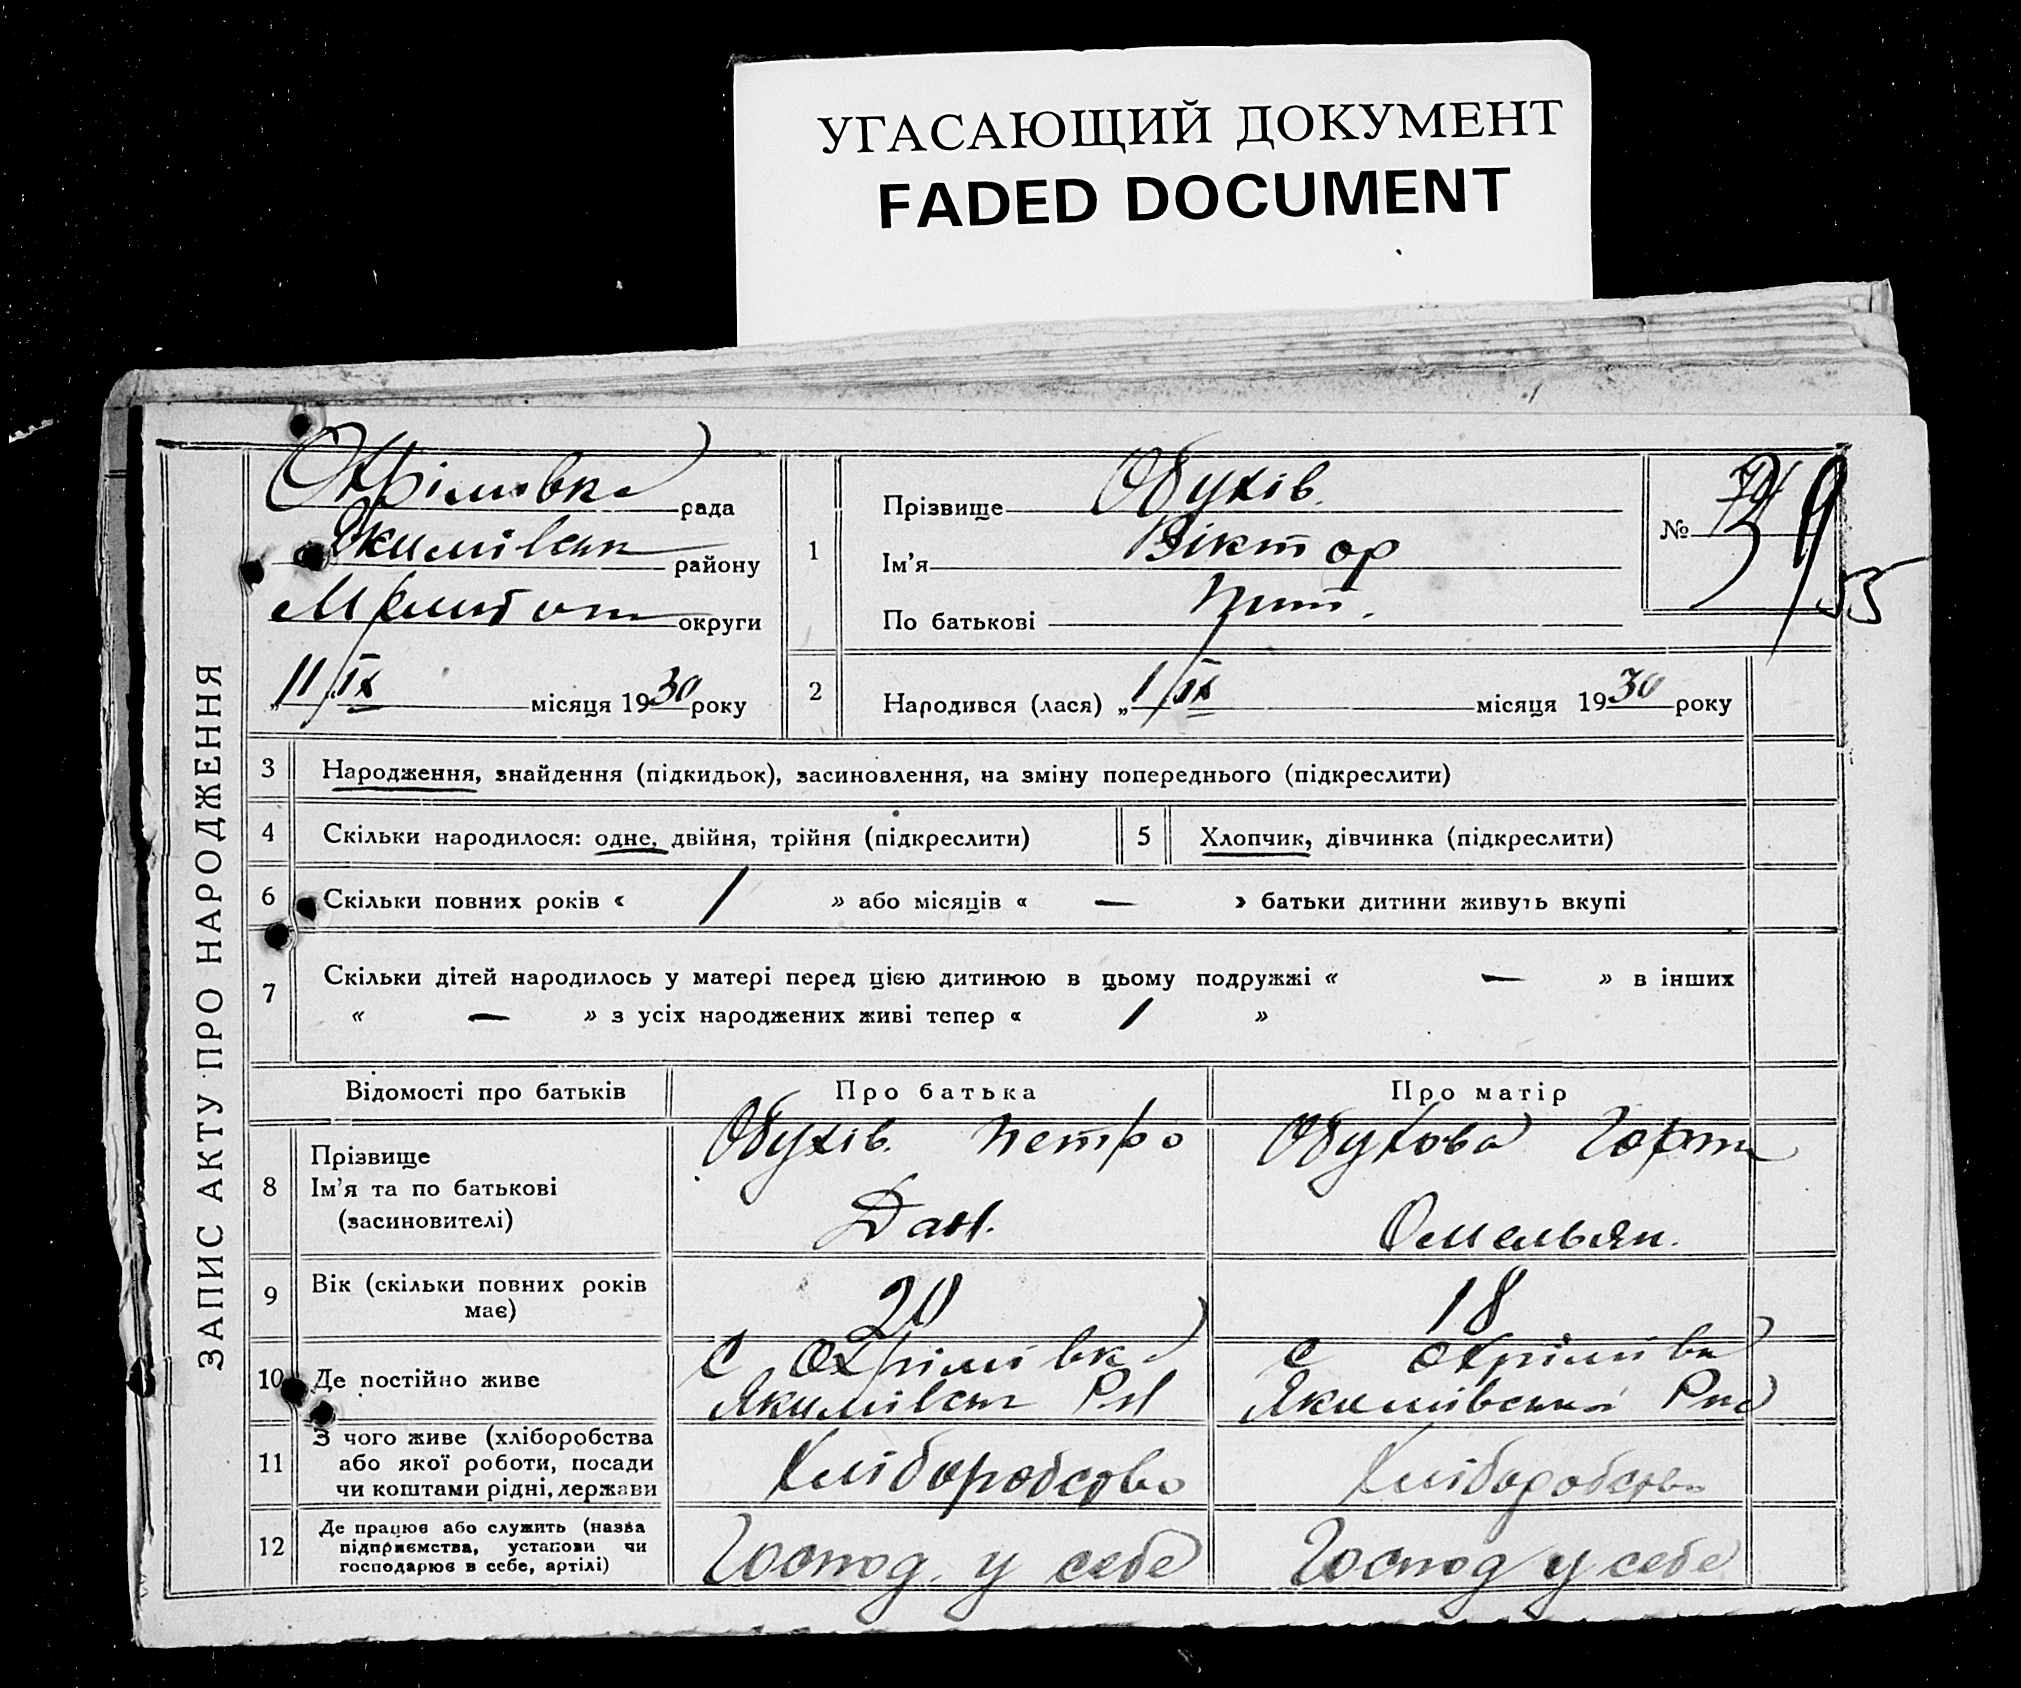 УГАСАЮЩИЙ ДОКУМЕНТ
FADED DOCUMENT
ЗАПИС АКТУ ПРО НАРОДЖЕННЯ
Охрімовка рада
Якимівськ району
округи
„11/IX місяця 1930 року
1
Прізвище Обухів.
Ім'я Віктор
По батькові
№
35
2
Народився (лася) „1/IX місяця 1930 року
3 Народження, знайдення (підкидьок), засиновлення, на зміну попереднього (підкреслити)
4 Скільки народилося: одне, двійня, трійня (підкреслити)
5 Хлопчик, дівчинка (підкреслити)
6 Скільки повних років « 1 » або місяців « — » батьки дитини живуть вкупі
7 Скільки дітей народилось у матері перед цією дитиною в цьому подружжі « — » в інших
« — » з усіх народжених живі тепер « 1 »
Відомості про батьків Про батька Про матір
8
Прізвище
Ім'я та по батькові
(засиновителі)
Обухів. Петро
Дан.
Обухова
Омельян.
9
Вік (скільки повних років
має)
20
18
10 Де постійно живе
с Охрімівка
Якимівськ
с Охрімівка
Якимівської
11
З чого живе (хліборобства
або якої роботи, посади
чи коштами рідні, держави
Хліборобство
Хліборобство
12
Де працює або служить (назва
підприємства, установи чи
господарює в себе, артілі)
Господ. у себе
Господ у себе